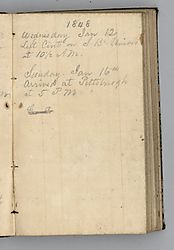 1848
Wednesday Jan 12
Left Cint on S B Union
at 10½ A.M.
Sunday Jan 16th
Arrived at Pittsburgh
at 5 P M